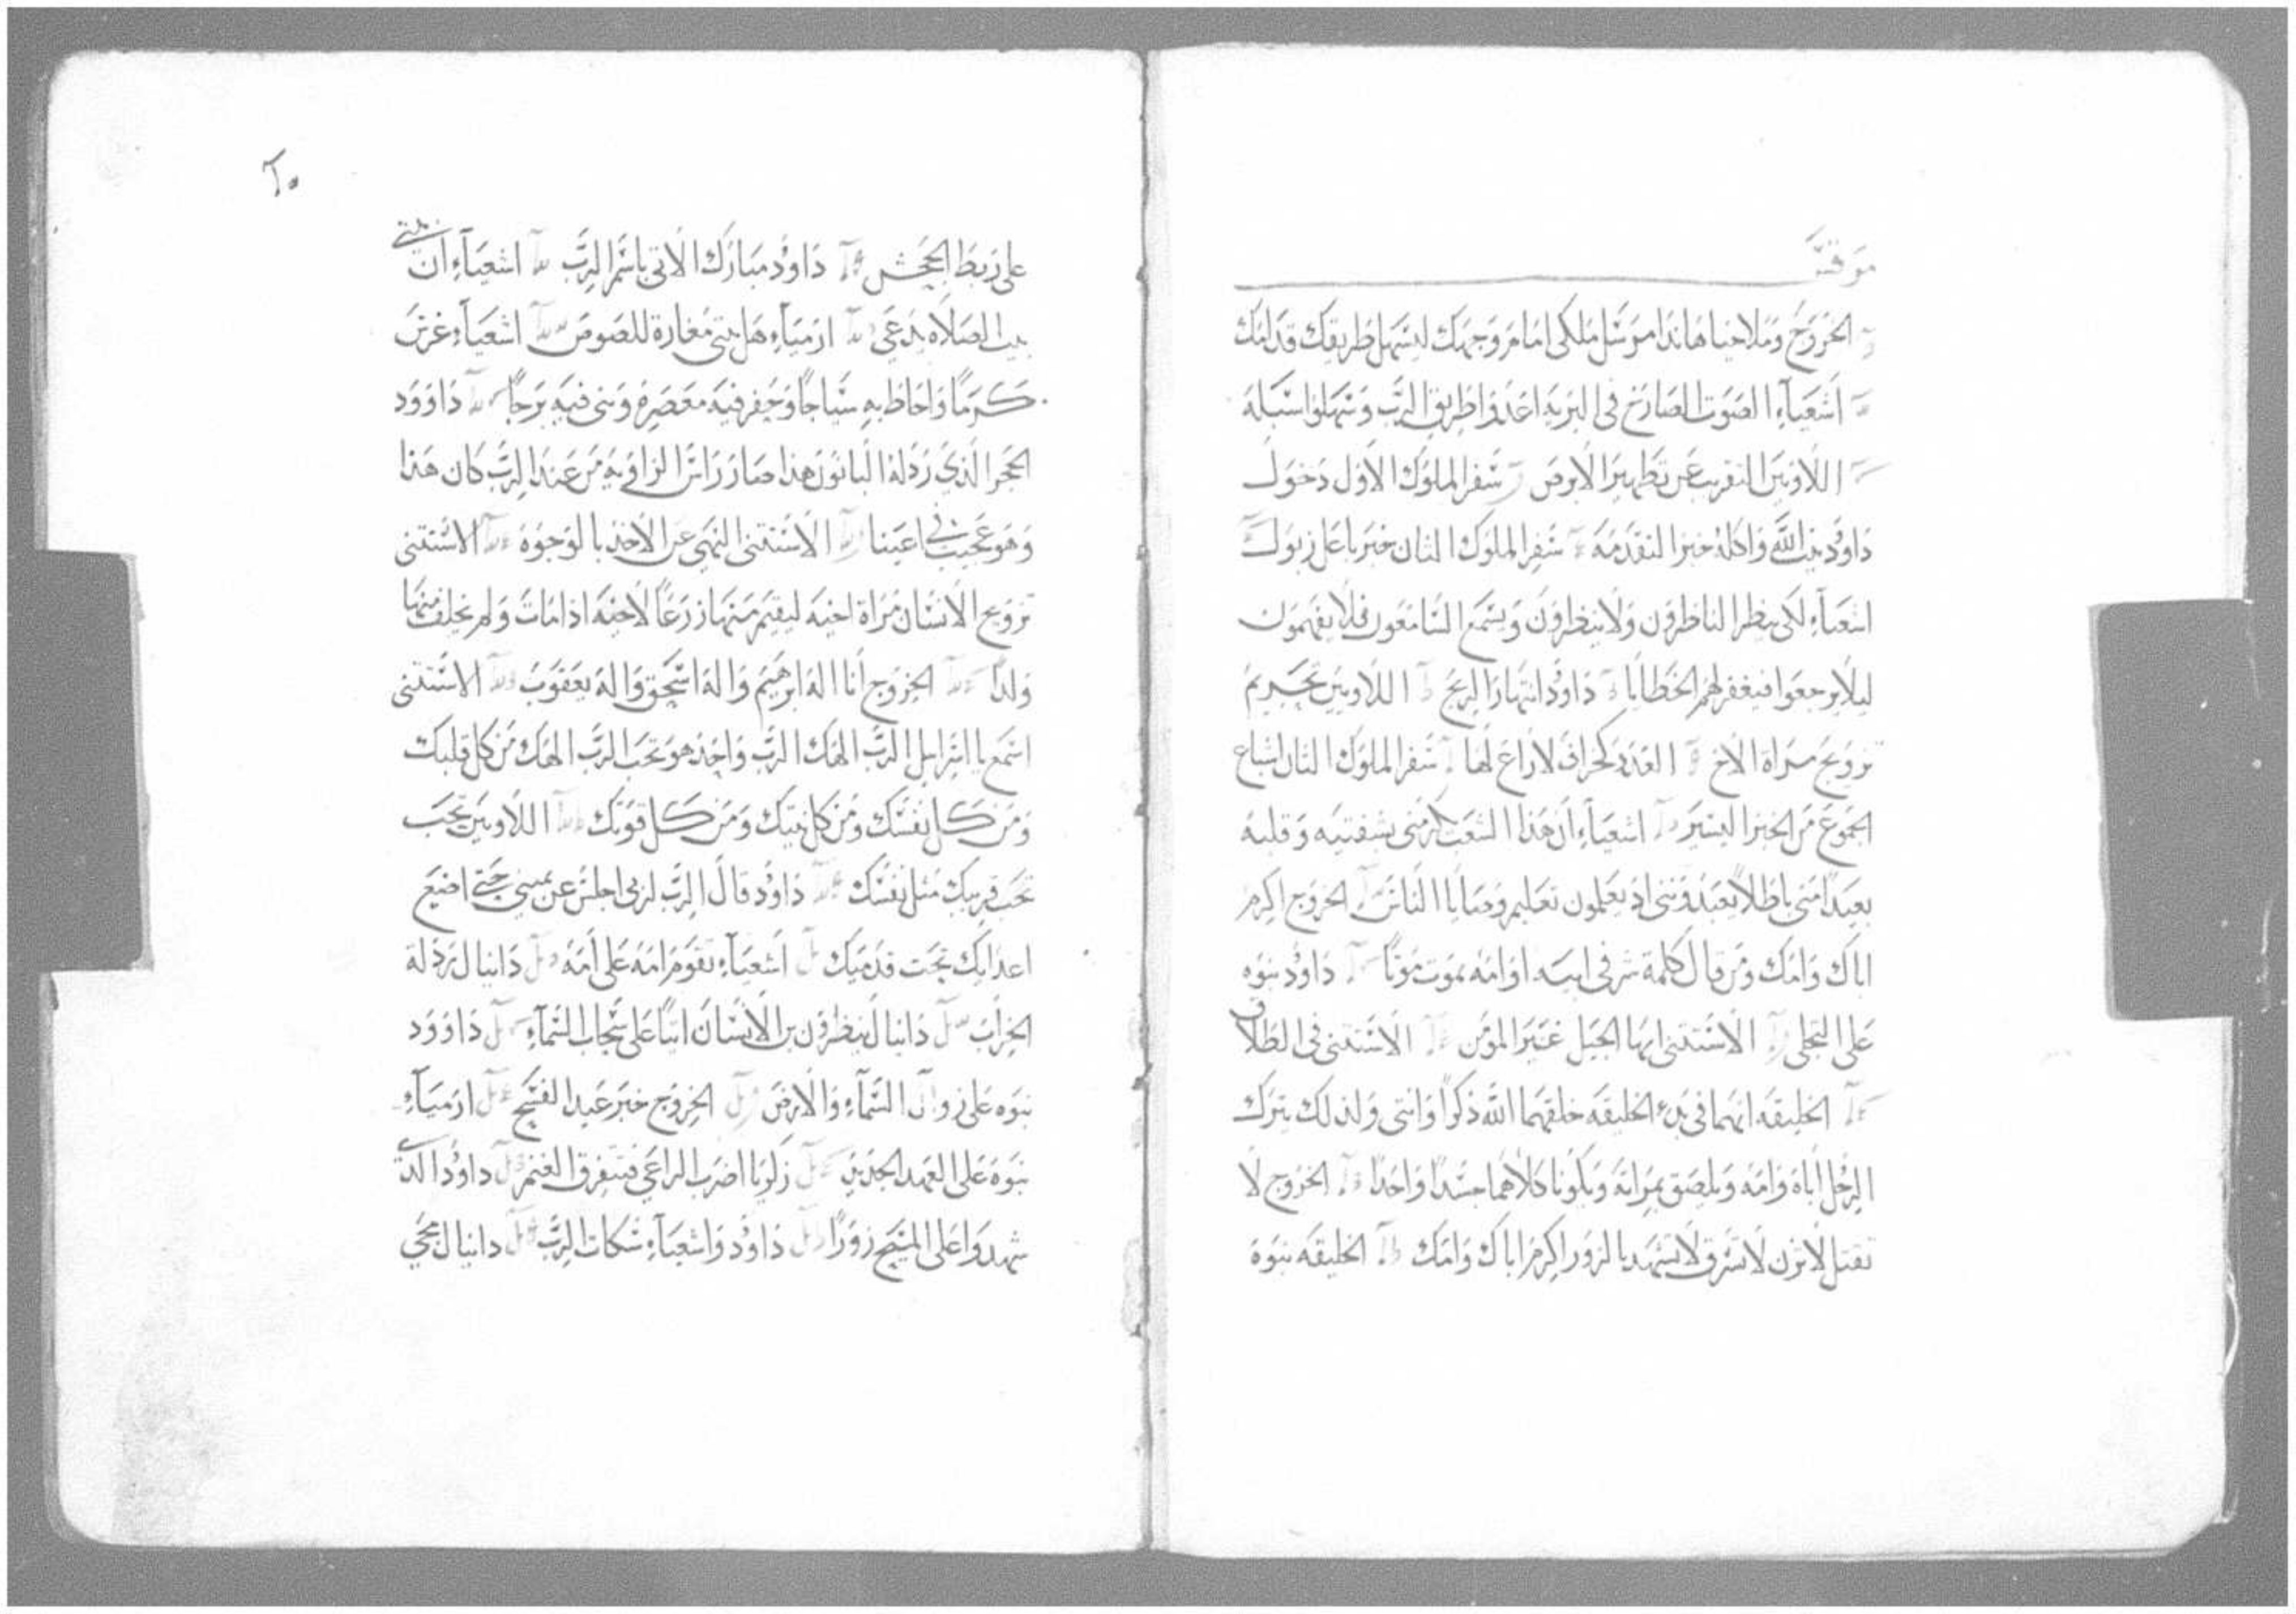 مرقس
الخروج وملاخيا هاندا مرسل ملاكي امام وجهك ليسهل طريقك قدامك
اشعياء الصوت الصارخ في البريه اعدوا طريق الرب وسهلوا سبله
اللاويين التقريب عن تطهير الابرص سفر الملوك الاول دخول
داوُد بيت الله واكله خبز التقدمه سفر الملوك الثان خبر باعل زبول
اشعياء لكي ينظر الناظرون ولا ينظرون ويسمع السامعون فلا يفهمون
ليلا يرجعوا فيغفر لهم الخطايا داوُد انتهار الريح اللاويين تحريم
تزويج مراة الاخ العدد كخراف لا راع لها سفر الملوك الثان اشباع
الجموع من الخبز اليسير اشعياء ان هذا الشعب يكرمني بشفتيه وقلبه
بعيدًا مني باطلاً يعبدونني اذ يعلمون تعليم وصايا الناس الخروج اكرم
اباك وامك ومن قال كلمة شر في ابيه او امه يموت موتًا داوُد نبوه
على التجلي الاستثني ايها الجيل غير المؤمن الاستثني في الطلاق
الخليقه انهما في بدء الخليقه خلقهما الله ذكرًا وانثى ولذلك يترك
الرجل اباه وامه ويلصق بمراته ويكونا كلاهما جسدًا واحدًا الخروج لا
تقتل لا تزن لا تسرق لا تشهد بالزور اكرم اباك وامك الخليقه نبوة
على ربط الجحش داوُد مبارك الاتي باسم الرب اشعياء ان بيتي
بيت الصلاه يدعى ارمياء هل بيتي مغارة للصوص اشعياء غرس
كرمًا واحاط به سياجًا وحفر فيه معصره وبنى فيه برجًا داوود
الحجر الذي رذله البانون هذا صار راس الزاويه من عند الرب كان هذا
وهو عجيب في اعيننا الاستثني النهي عن الاخذ بالوجوه الاستثني
تزويج الانسان مراة اخيه ليقيم منها زرعًا لاخيه اذا مات ولم يخلف منها
ولدًا الخروج انا اله ابرهيم واله اسحق واله يعقوب الاستثني
اسمع يا اسرايل الرب الهك الرب واحد هو تحب الرب الهك من كل قلبك
ومن كل نفسك ومن كل نيتك ومن كل قوتك اللاويين تحب
تحب قريبك مثل نفسك داوُد قال الرب لربي اجلس عن يميني حتى اضع
اعدايك تحت قدميك اشعياء تقوم امه على امه دانيال رذلة
الخراب دانيال ينظرون بن الانسان اتيًا على سحاب السماء داوود
نبوه على زوال السماء والارض الخروج خبر عيد الفسح ارمياء
نبوه على العهد الجديد زكريا اضرب الراعي فتتفرق الغنم داوُد الذين
شهدوا على المسيح زورًا داوُد واشعياء شكات الرب دانيال مجي